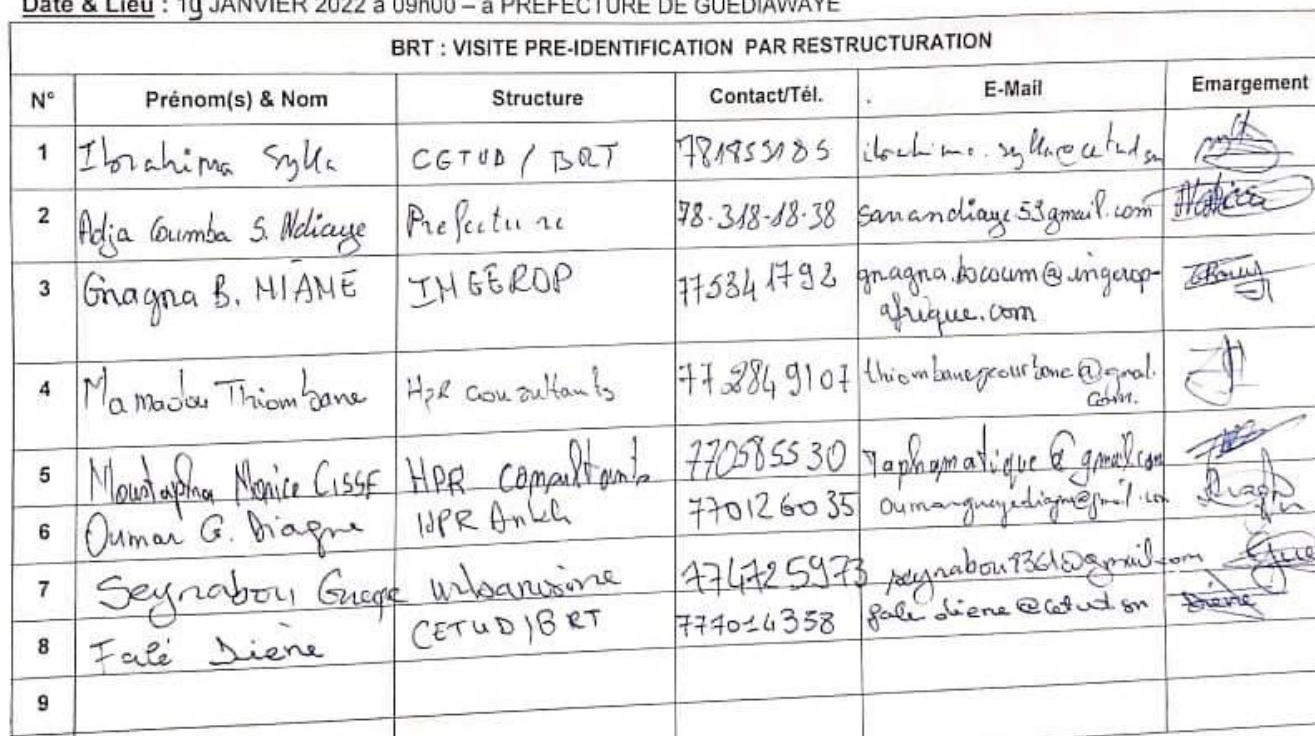 Date & Lieu : 19 JANVIER 2022 à 09h00 – à PREFECTURE DE GUEDIAWAYE
BRT : VISITE PRE-IDENTIFICATION PAR RESTRUCTURATION
N° Prénom(s) & Nom Structure Contact/Tél. E-Mail Emargement
1 Ibrahima Sylla CETUD / BRT 781855185 ibrahima.sylla@cetud.sn
2 Adja Coumba S. Ndiaye Prefecture 78-318-18-38 sanandiaye53gmail.com
3 Gnagna B. NIANE INGEROP 775341792 gnagna.bocoum@ingerop-
afrique.com
4 Mamadou Thiombane HPR Consultants 772849107
5 Moustapha Cisse HPR Consultants 770585530 @gmail.com
6 Oumar G. Diagne HPR Ankh 770126035 oumargueyediagne@gmail.com
7 Seynabou Gueye urbanisme 774725973
8 Falé Diène CETUD/BRT 777014358
9